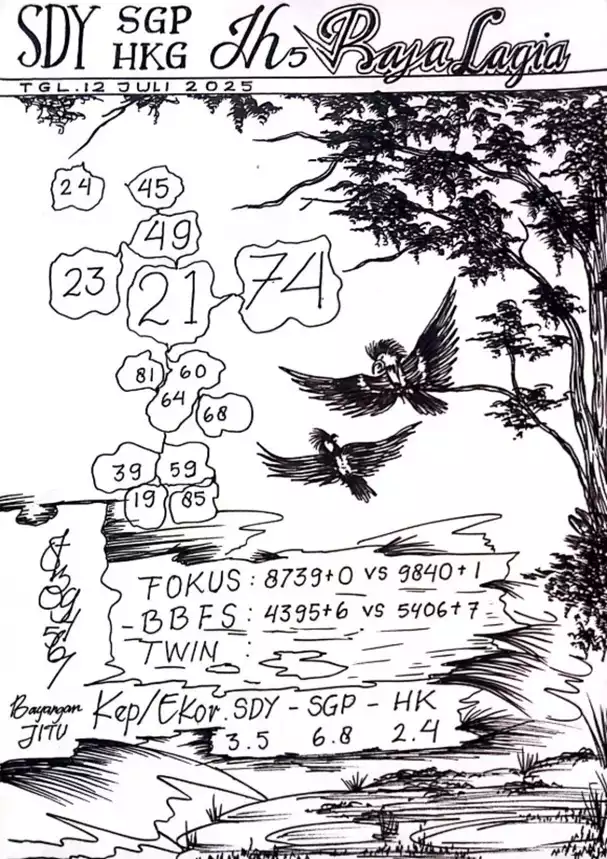 SDY SGP HKG Jh5 Raja Lagia
TGL.12 JULI 2025
24 45
49
23 21 74
81 60
64
68
39 59
19 85
FOKUS : 8739+0 vs 9840+1
BBFS : 4395+6 vs 5406+7
TWIN :
Bayangan JITU
Kep/Ekor. SDY - SGP - HK
3.5 6.8 2.4